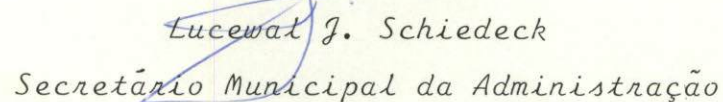 Lucewal J. Schiedeck
Secretário Municipal da Administração